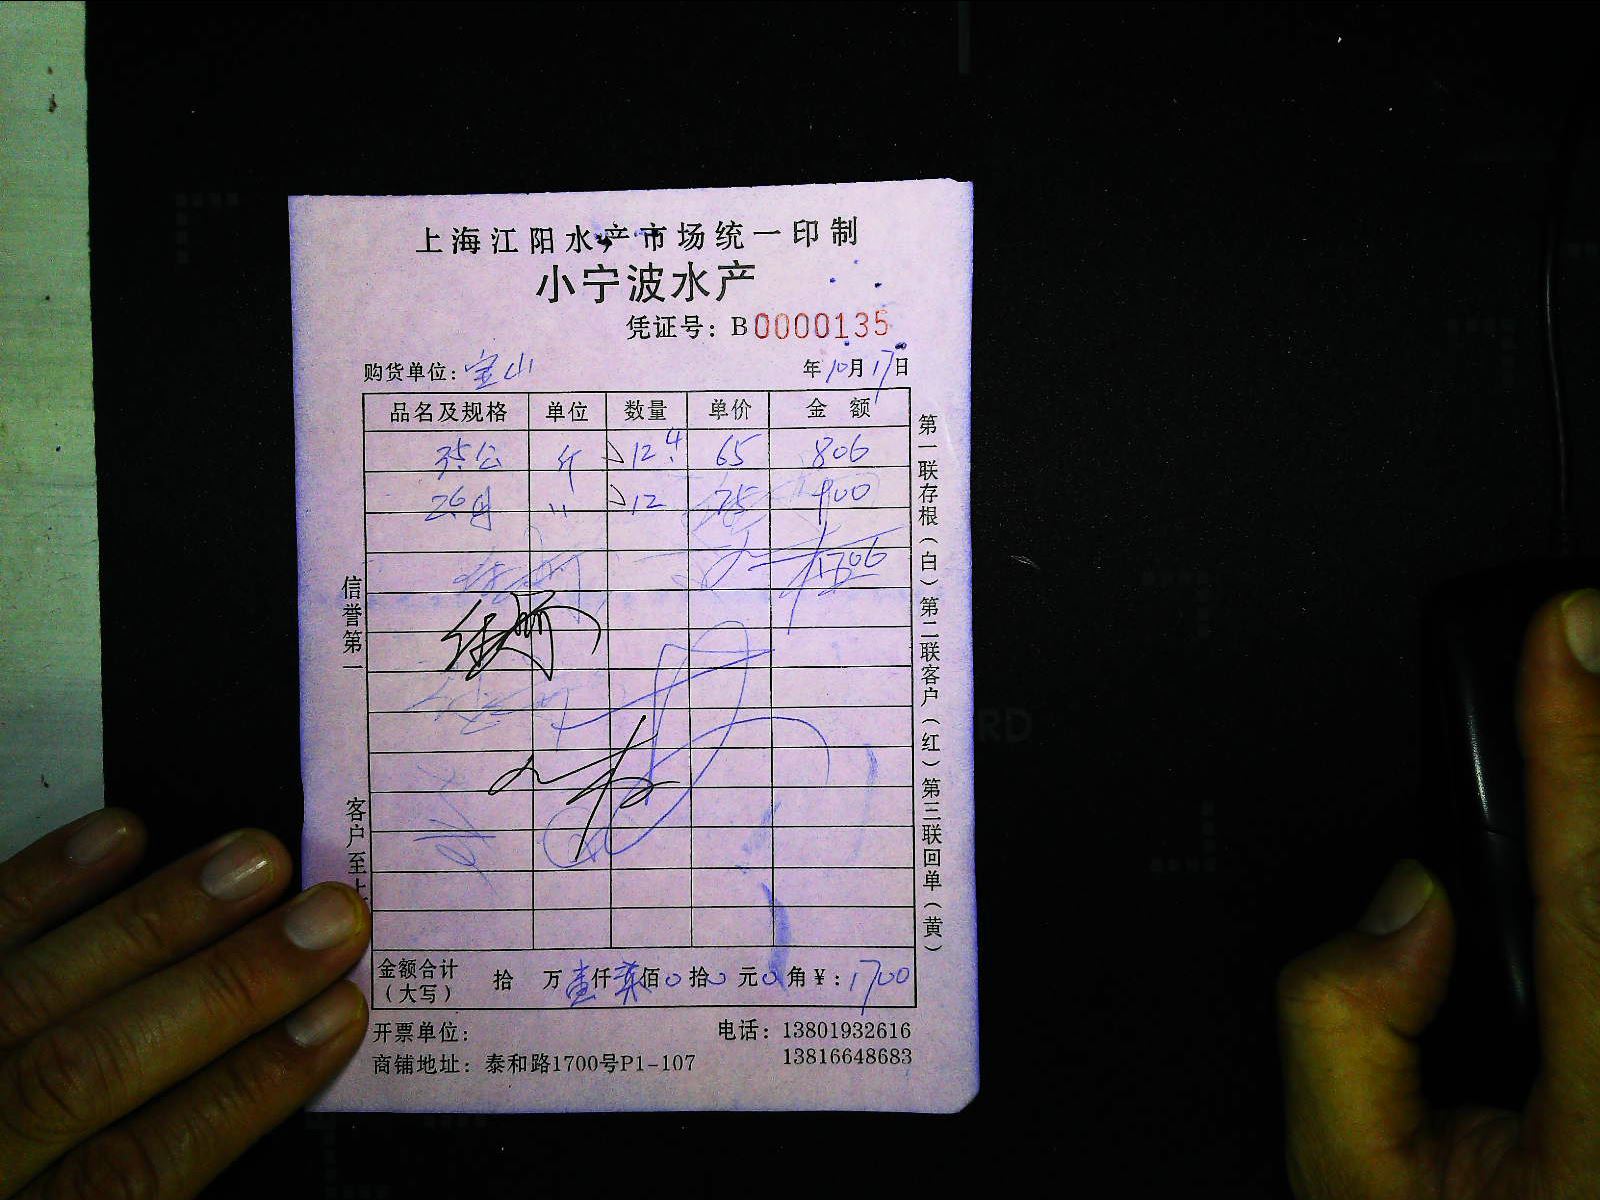 上海江阳水产市场统一印制
小宁波水产
凭证号：B0000135
购货单位：宝山 年10月17日
品名及规格 单位 数量 单价 金额
35公 斤 12.4 65 806
26母 〃 12 75 900
1706
信誉第一 客户至上
第一联存根（白）第二联客户（红）第三联回单（黄）
金额合计（大写） 拾 万壹仟柒佰0拾0元0角￥：1700
开票单位： 电话：13801932616
商铺地址：泰和路1700号P1-107 13816648683